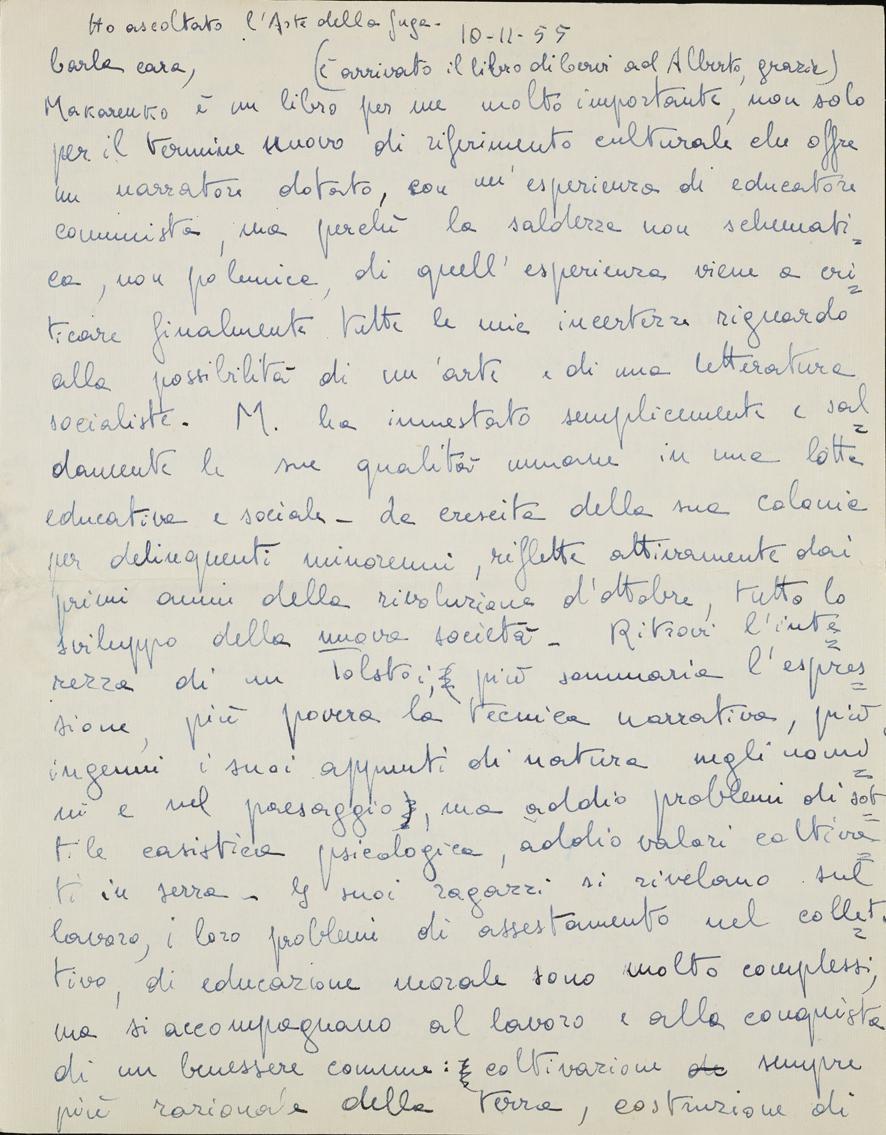 Ho ascoltato l'Arte della fuga -
10-11-55
Carla cara, (è arrivato il libro di Cervi ad Alberto, grazie)
Makarenko è un libro per me molto importante, non solo
per il termine nuovo di riferimento culturale che offre
un narratore dotato, con un'esperienza di educatore
comunista, ma perchè la saldezza non schemati=
ca, non polemica, di quell'esperienza viene a cri=
ticare finalmente tutte le mie incertezze riguardo
alla possibilità di un'arte e di una letteratura
socialiste. M. ha innestato semplicemente e sal=
damente le sue qualità umane in una lotta
educativa e sociale - La crescita della sua colonia
per delinquenti minorenni, riflette attivamente dai
primi anni della rivoluzione d'ottobre, tutto lo
sviluppo della nuova società - Ritrovi l'inte=
rezza di un Tolstoi, più sommaria l'espres=
sione, più povera la tecnica narrativa, più
ingenui i suoi appunti di natura negli uomi=
ni e nel paesaggio, ma addio problemi di sot=
tile casistica psicologica, addio valori coltiva=
ti in serra - I suoi ragazzi si rivelano sul
lavoro, i loro problemi di assestamento nel collet=
tivo, di educazione morale sono molto complessi,
ma si accompagnano al lavoro e alla conquista
di un benessere comune: coltivazione de sempre
più razionale della terra, costruzione di